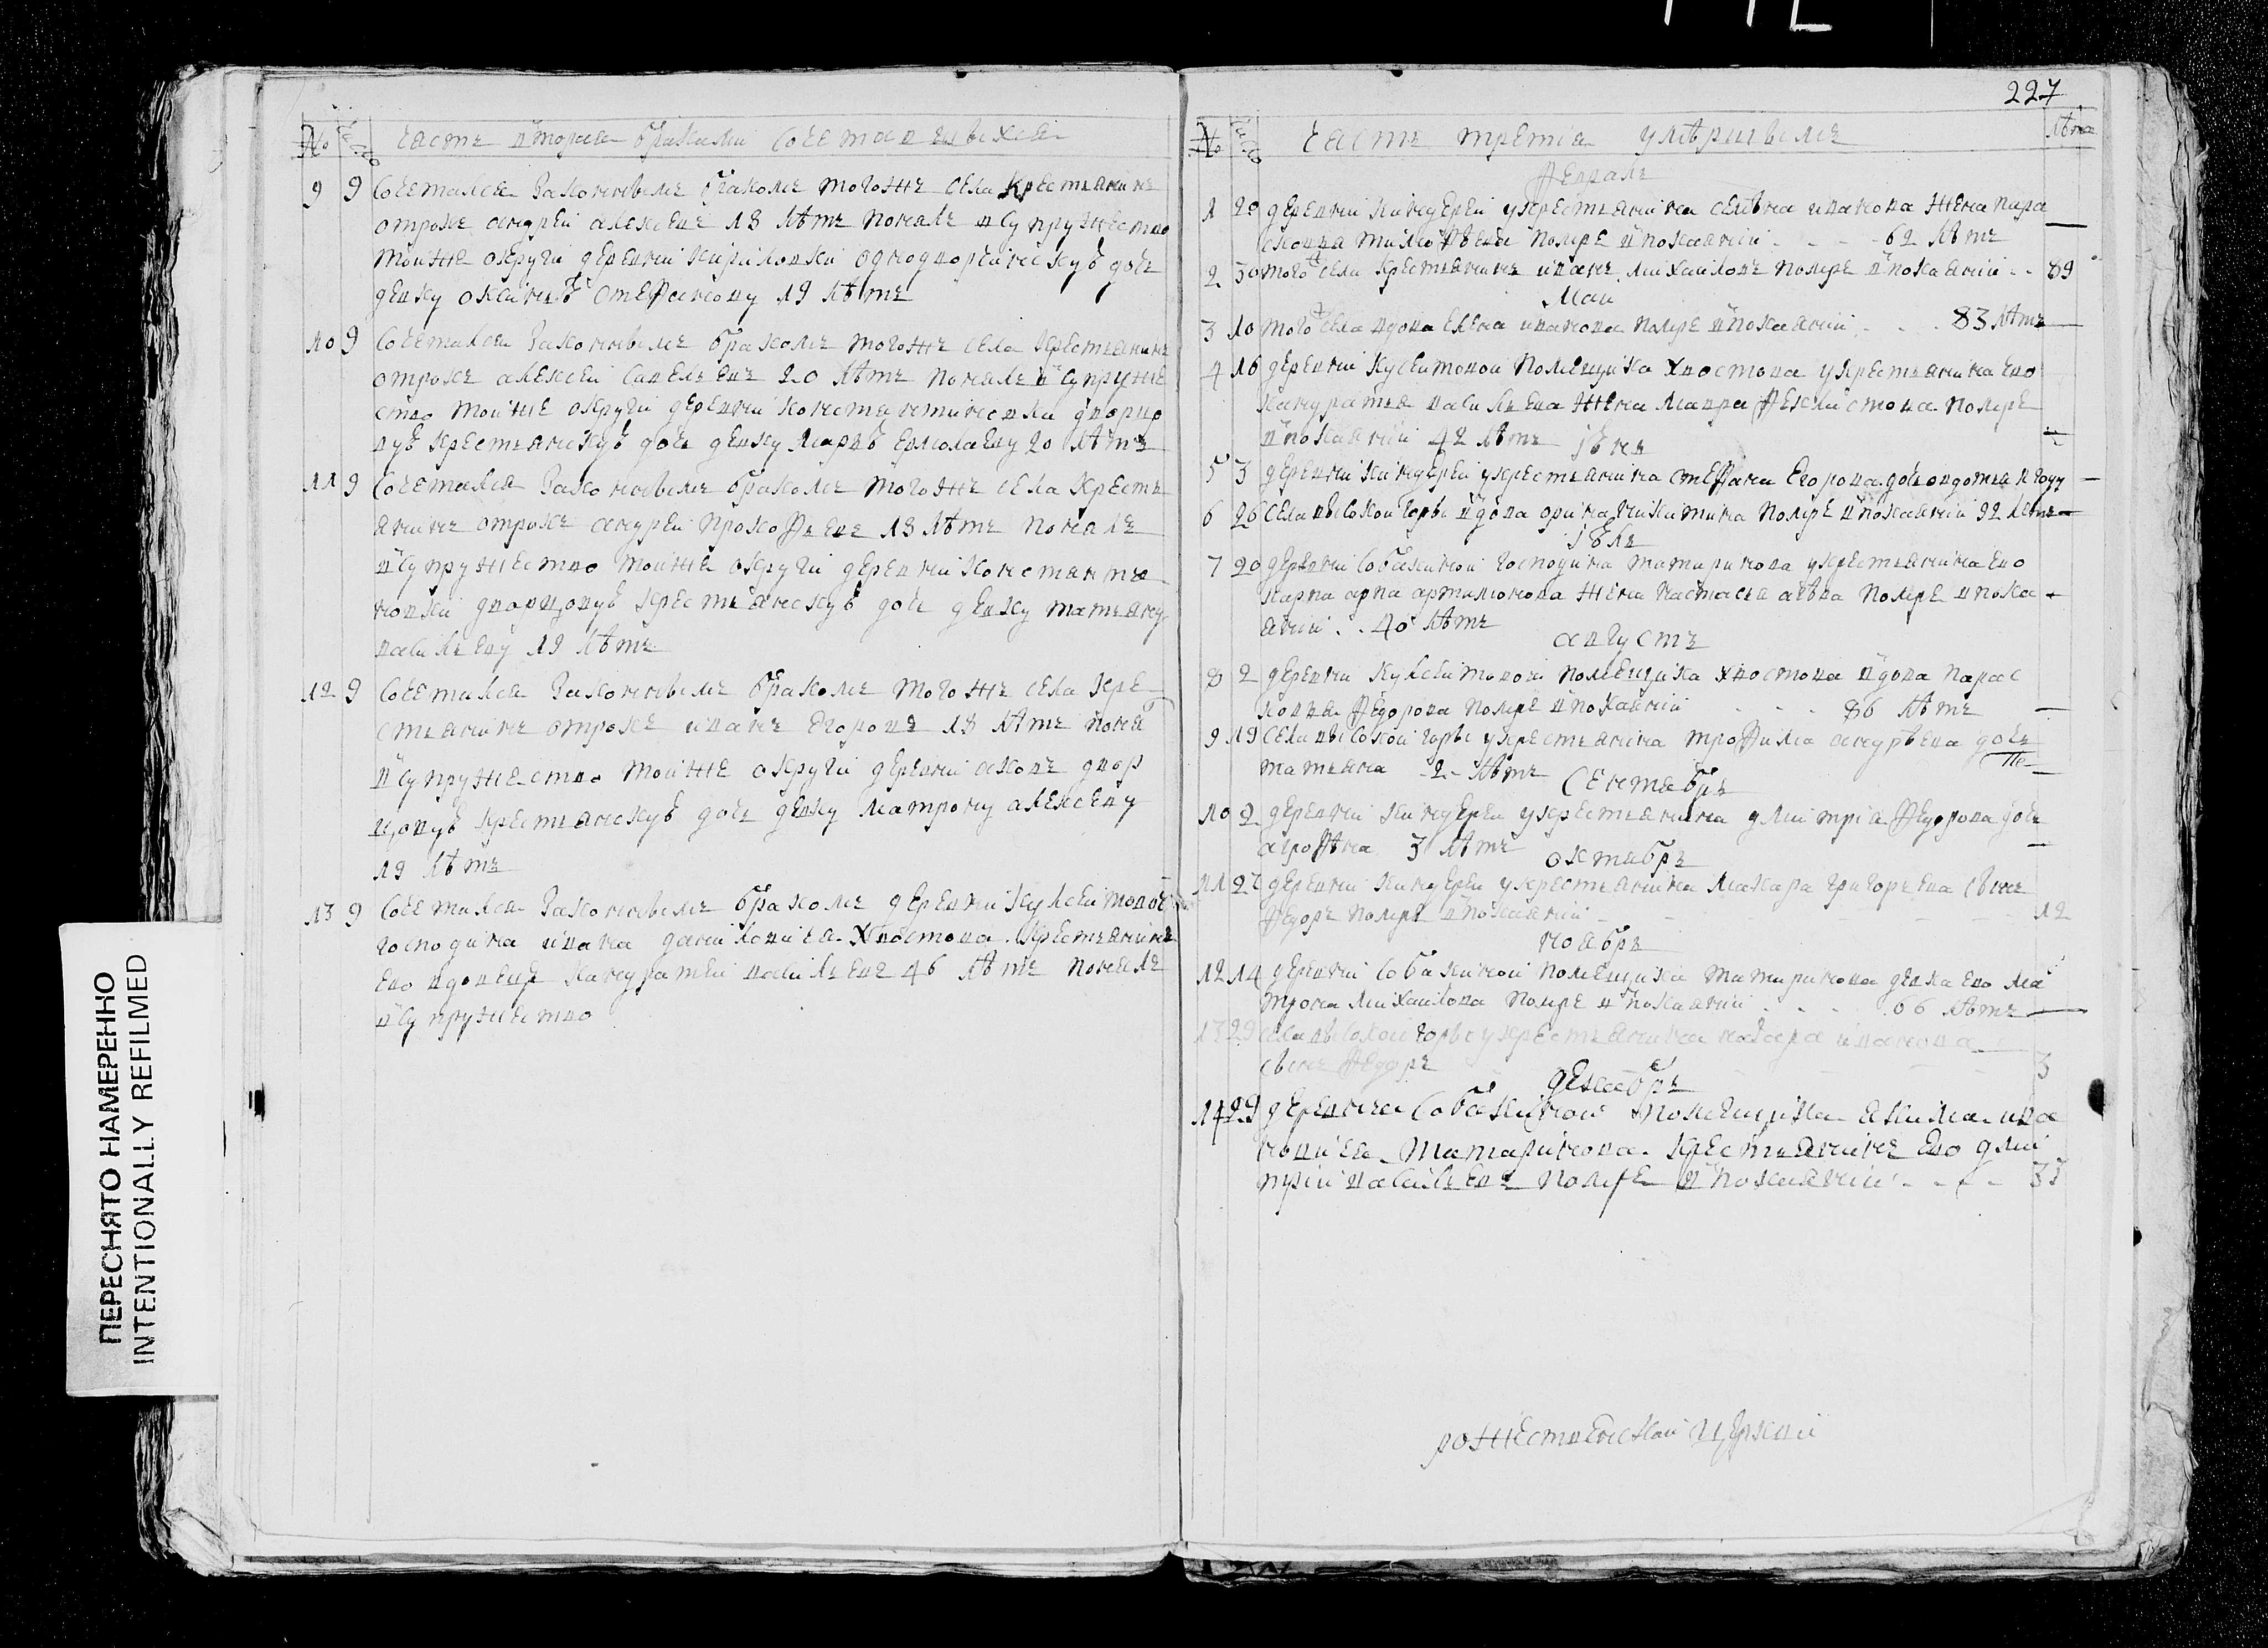 227
№ часть вторая браками сочетавшихся
9 9 Сочетался законнымъ бракомъ тогожъ села крестьянинъ
отрокъ андрей алексеевъ 18 лѣтъ понялъ въ супружество
тоижъ округи деревни кириловки однодворческую дочь
девку оксинью стефанову 19 лѣтъ
10 9 Сочетался законнымъ бракомъ тогожъ села крестьянинъ
отрокъ алексей савельевъ 20 лѣтъ понялъ в супруже
ство тоижъ округи деревни константиновки дворцо
вую крестьянскую дочь девку марѳу ермолаеву 20 лѣтъ
11 9 Сочетался законнымъ бракомъ тогожъ села кресть
янинъ отрокъ андрей прокофьевъ 18 лѣтъ понялъ
в супружество тоижъ округи деревни константи
новки дворцовую крестьянскую дочь девку татьяну
васильеву 19 лѣтъ
12 9 Сочетался законнымъ бракомъ тогожъ села кре
стьянинъ отрокъ иванъ егоровъ 18 лѣтъ понял
в супружество тоижъ округи деревни двор
цовую крестьянскую дочь девку матрону алексеву
19 лѣтъ
13 9 Сочетался законнымъ бракомъ деревни
господина ивана даниловича Хвостова крестьянинъ
ево вдовец кандратей васильевъ 46 лѣтъ понялъ
в супружество
№ часть третiя умѣршымъ лѣта
февраль
1 20 деревни киндерей у крестьянина ивакова жена пара
сковья тимофѣева помре в покаянии 62 лѣтъ
2 30 того села крестьянинъ иванъ михаиловъ помре в покаянии 89
Маи
3 10 того села вдова елена иванова помре в покаянии 83 лѣтъ
4 16 деревни помещика Хвостова у крестьянина ево
кандратья васильева жена мавра феклистова помре
в покаянии 42 лѣтъ
iюнь
5 3 деревни киндерей у крестьянина стефана егорова дочь авдотья году
6 26 села высокои горы вдова орина никитина помре в покаянии 92 летъ
iюль
7 20 деревни собакинои господина татаринова у крестьянина ево
карпа артамонова жена настасья помре в пока
янии 40 лѣтъ
августъ
8 2 деревни помещика хвостова вдова парас
ковья федорова помре в покаянии 86 лѣтъ
9 19 села высокои горы у крестьянина трофима андрѣева дочь
татьяна 2 лѣтъ
Сентябрь
10 2 деревни киндерей у крестьянина дмитрiя федорова дочь
агрофена 3 лѣтъ
октябрь
11 27 деревни киндерей у крестьянина макара григорьева сынъ
федоръ помре в покаянии 12
ноябрь
12 14 деревни собакинои помещика татаринова девка ево ма
трона михаилова помре в покаянии 66 лѣтъ
13 29 села высокои горы у крестьянина назара иванова
сынъ федоръ 3
декабрь
14 29 деревни собакинои помещика акима ива
новича татаринова крестьянинъ ево дми
трiи васильевъ помре в покаянии 35
рожественскои церкви
ПЕРЕСНЯТО НАМЕРЕННО
INTENTIONALLY REFILMED